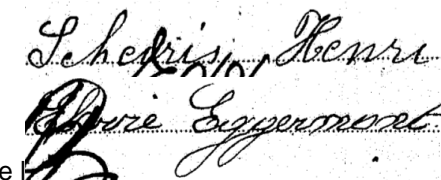 Scheiris Henri
Elvire Eggermont
e